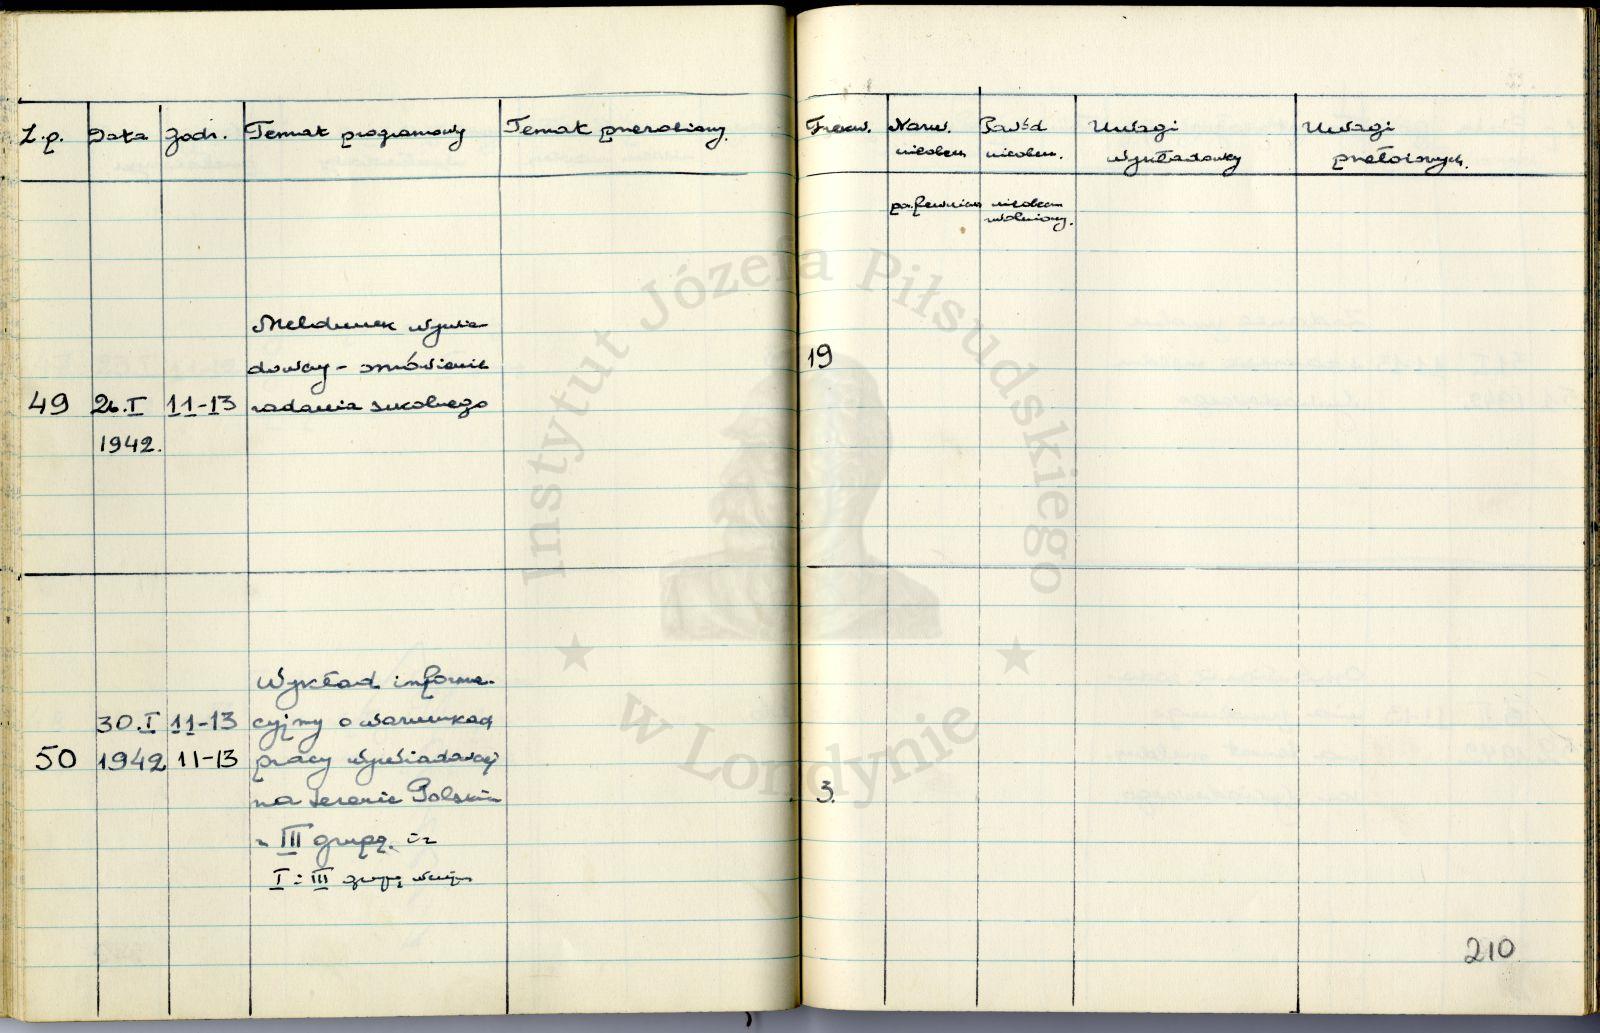 L.p. Data Godz. Temat programowy Temat przerobiony.
49 26.I 1942. 11-13
Meldunek wywia-
dowczy - omówienie
zadania szkolnego
50 30.I 1942 11-13 11-13
Wykład informa-
cyjny o warunkach
pracy wywiadowczej
na terenie Polski
z III grupą.
I i III grupę
Frekw. Nazw. nieobecn. Powód nieobecn. Uwagi wykładowcy Uwagi przełożonych.
zwolniony.
19
3.
210
Instytut Józefa Piłsudskiego
w Londynie